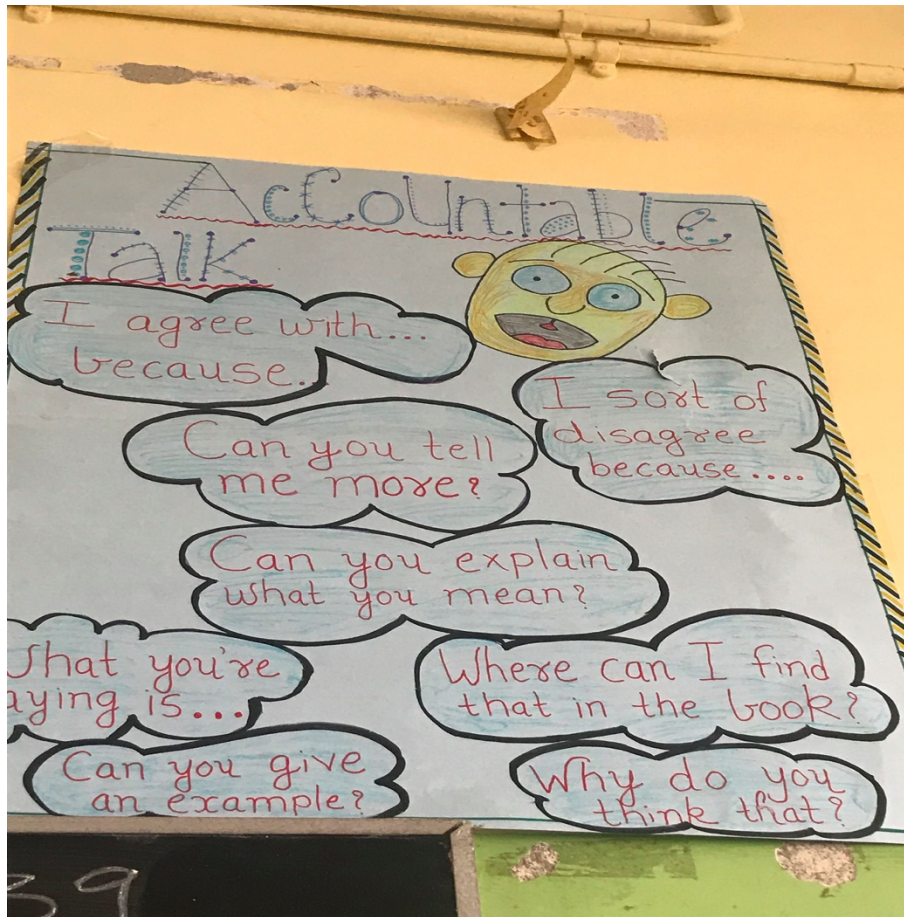 Accountable
Talk
I agree with...
because..
I sort of
disagree
because....
Can you tell
me more?
Can you explain
what you mean?
What you're
aying is...
Where can I find
that in the book?
Can you give
an example?
Why do you
think that?
39